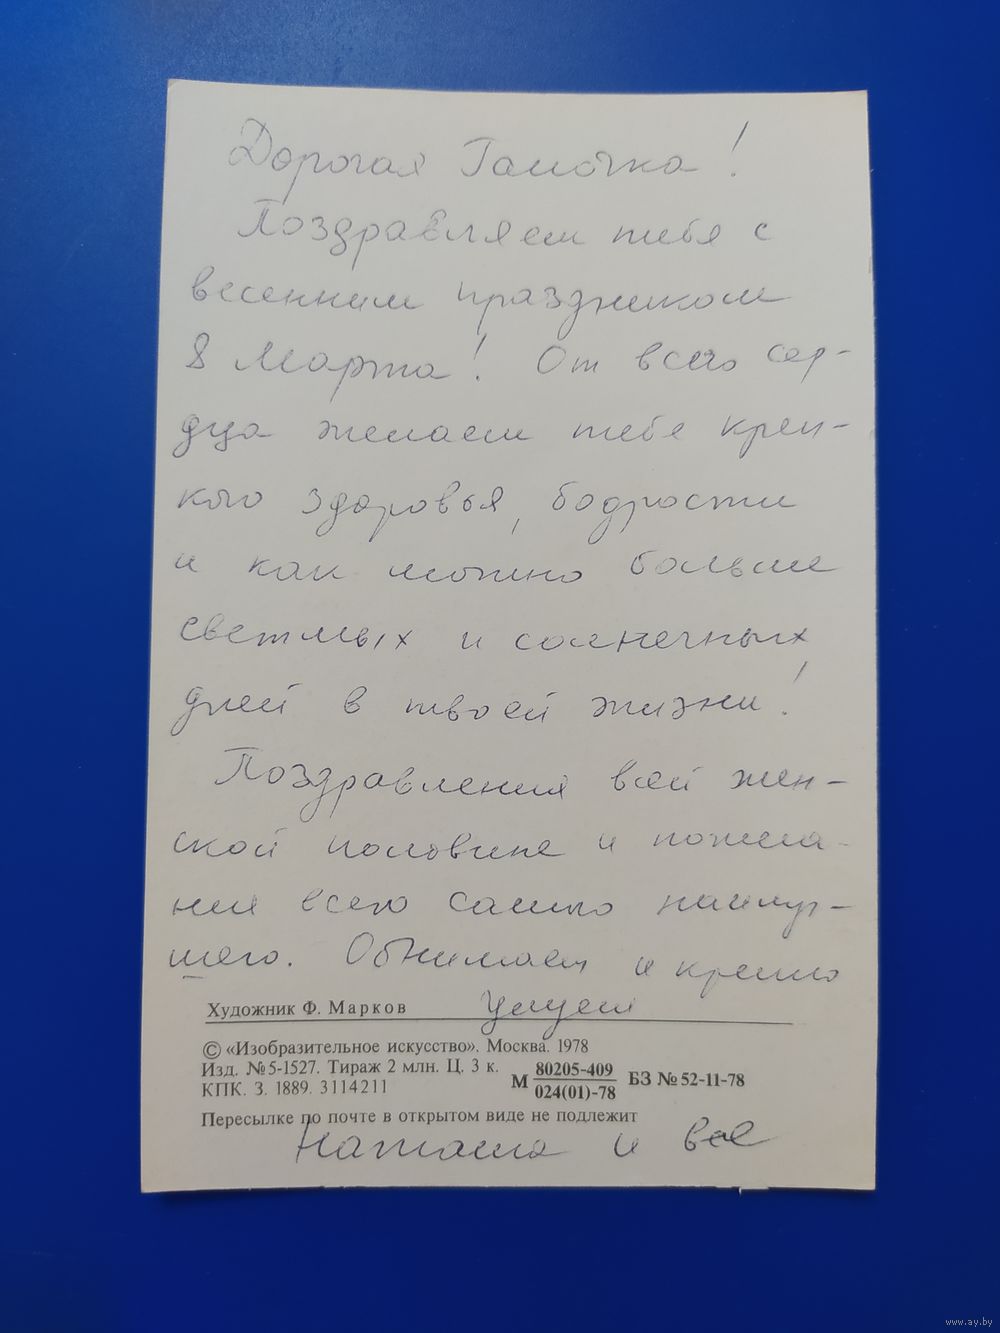 Дорогая Галочка!
Поздравляем тебя с
весенним праздником
8 Марта! От всего сер-
дца желаем тебе креп-
кого здоровья, бодрости
и как можно больше
светлых и солнечных
дней в твоей жизни!
Поздравления всей жен-
ской половине и пожела-
ния всего самого наилуч-
шего. Обнимаем и крепко
целуем
Художник Ф. Марков
© «Изобразительное искусство». Москва. 1978
Изд. №5-1527. Тираж 2 млн. Ц. 3 к.
КПК. З. 1889. 3114211
М 80205-409
024(01)-78
БЗ №52-11-78
Пересылке по почте в открытом виде не подлежит
Наташа и все
www.ay.by